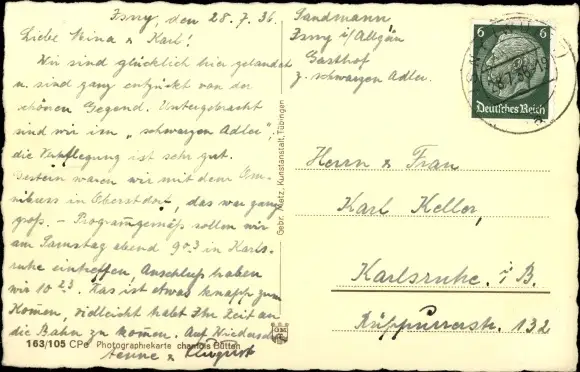 Isny, den 28.7.36.
Liebe Mina & Karl!
Wir sind glücklich hier gelandet
u. sind ganz entzückt von der
schönen Gegend. Untergebracht
sind wir im „schwarzen Adler",
die Verpflegung ist sehr gut.
Gestern waren wir mit dem Om-
nibuss in Oberstdorf, das war ganz
groß. – Programgemäß sollen wir
am Samstag abend 9 03 in Karls-
ruhe eintreffen, Anschluß haben
wir 10 23. Das ist etwas knapp zum
Kommen, vielleicht habt Ihr Zeit an
die Bahn zu kommen. Auf Wiedersehn
Aenne & August
163/105 CPe Photographiekarte chamois Bütten
Gebr. Metz, Kunstanstalt, Tübingen
Sandmann
Isny i/Allgäu
Gasthof
z. schwarzen Adler.
6 6
Deutsches Reich
Herrn & Frau
Karl Keller,
Karlsruhe. i B.
Rüppurrerstr. 132